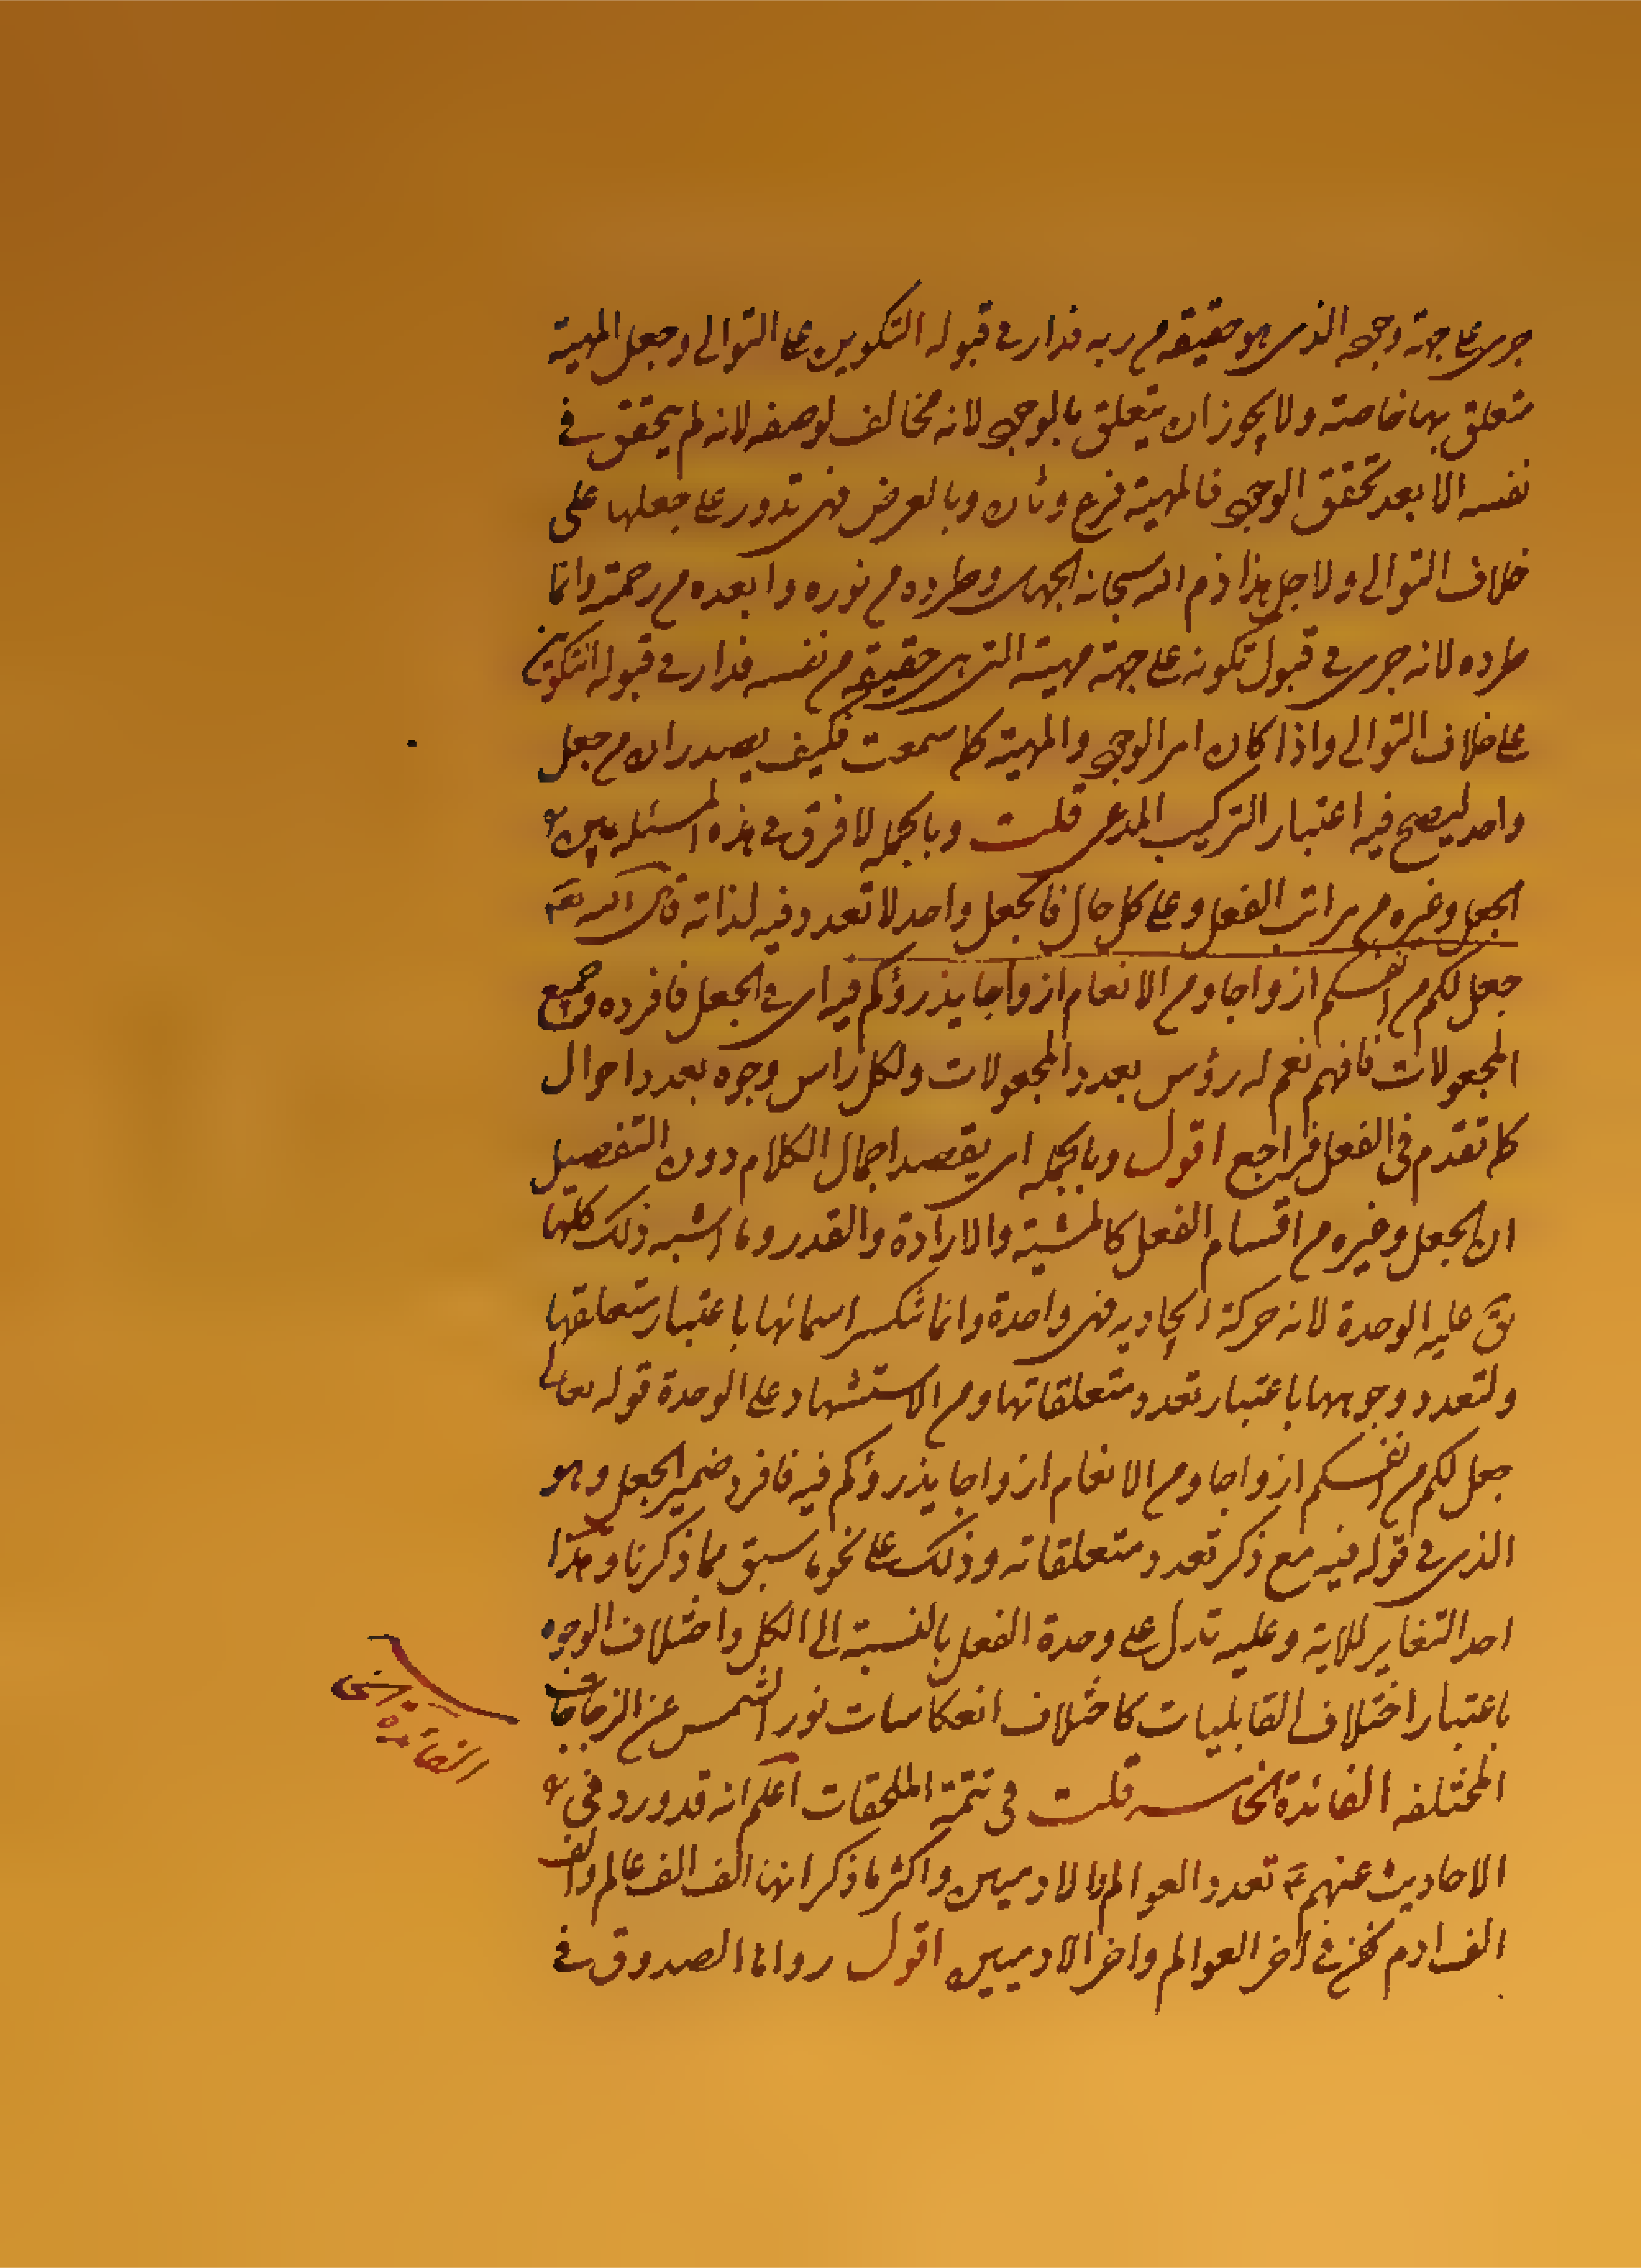 جرى على جهة وجوده الذي هو حقيقته من ربه فدار في قبوله التكوين على التوالي وجعل المهية
متعلق بها خاصة ولا يجوز ان يتعلق بالوجود لانه مخالف لوصفه لانه لم يتحقق في
نفسه الا بعد تحقق الوجود فالمهية فرع وثان وبالعرض فهي تدور على جعلها على
خلاف التوالي ولاجل هذا ذم الله سبحانه الجهل وطرده من نوره وابعده من رحمته وانما
طرده لانه جرى في قبول تكونه على جهة مهيته التي هي حقيقته من نفسه فدار في قبوله التكوين
على خلاف التوالي واذا كان امر الوجود والمهية كما سمعت فكيف يصدران من جعل
واحد ليصح فيه اعتبار التركيب المدعى قلت وبالجملة لا فرق في هذه المسئلة بين
الجعل وغيره من مراتب الفعل وعلى كل حال فالجعل واحد لا تعدد فيه لذاته قال الله تع
جعل لكم من انفسكم ازواجا ومن الانعام ازواجا يذرؤكم فيه اي في الجعل فافرده وجمع
المجعولات فافهم نعم له رؤس بعدد المجعولات ولكل راس وجوه بعدد احوال
كما تقدم في الفعل فراجع اقول وبالجملة اي يقصد اجمال الكلام دون التفصيل
ان الجعل وغيره من اقسام الفعل كالمشية والارادة والقدر وما اشبه ذلك كلها
عليه الوحدة لانه حركة ايجادية فهي واحدة وانما تكسر اسمائها باعتبار متعلقها
ولتعدد وجوهها باعتبار تعدد متعلقاتها ومن الاستشهاد على الوحدة قوله تعالى
جعل لكم من انفسكم ازواجا ومن الانعام ازواجا يذرؤكم فيه فافرد ضمير الجعل وهو
الذي في قوله فيه مع ذكر تعدد متعلقاته وذلك على نحو ما سبق مما ذكرنا وهذا
احد التغاير للاية وعليه تدل على وحدة الفعل بالنسبة الى الكل واختلاف الوجوه
باعتبار اختلاف القابليات كاختلاف انعكاسات نور الشمس عن الزجاجات
المختلفه الفائدة الخامسه قلت في تتمة الملحقات اعلم انه قد ورد في
الاحاديث عنهم ع تعدد العوالم والادميين واكثر ما ذكر انها الف الف عالم والف
الف ادم نحن في اخر العوالم واخر الادميين اقول رواها الصدوق في
الفائدة